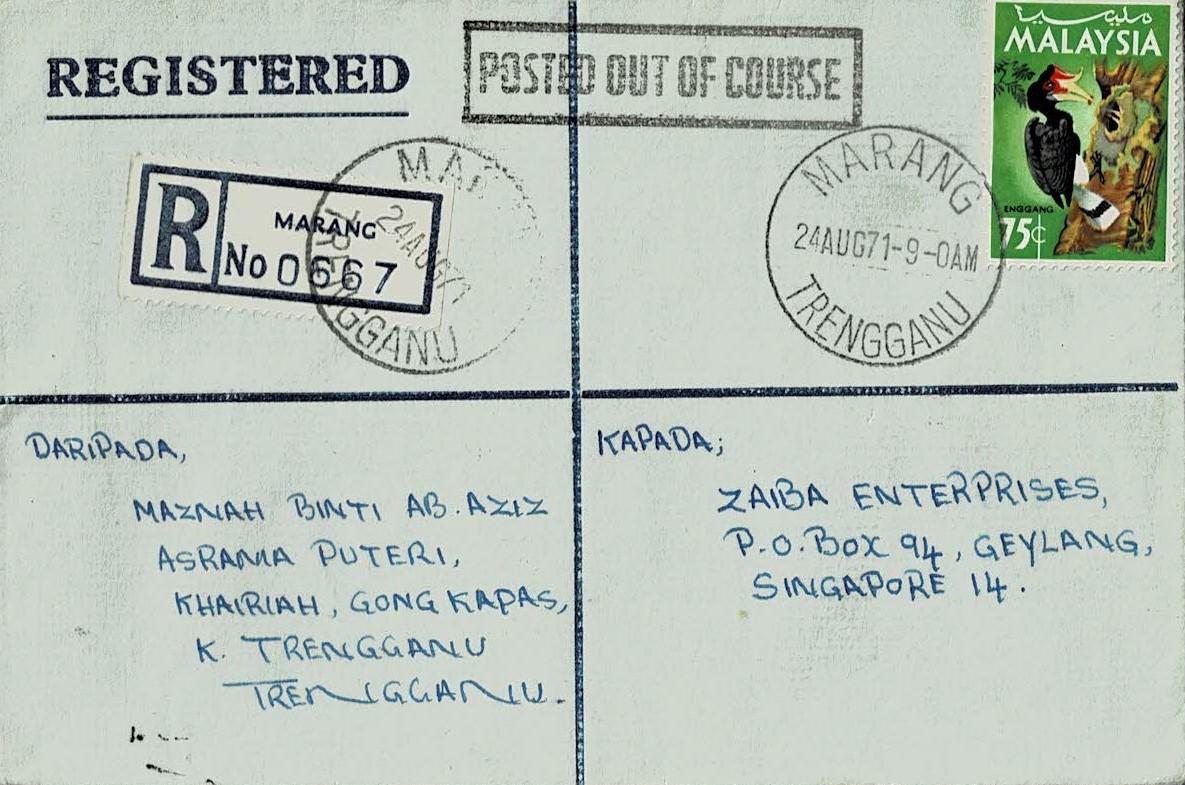 REGISTERED
POSTED OUT OF COURSE
مليسيا
MALAYSIA
ENGGANG
75¢
R
MARANG
No 0667
24AUG71
TRENGGANU
MARANG
24AUG71-9-0AM
TRENGGANU
DARIPADA,
MAZNAH BINTI AB. AZIZ
ASRAMA PUTERI,
KHAIRIAH, GONG KAPAS,
K. TRENGGANU
TRENGGANU.
KAPADA;
ZAIBA ENTERPRISES,
P.O. BOX 94, GEYLANG,
SINGAPORE 14.